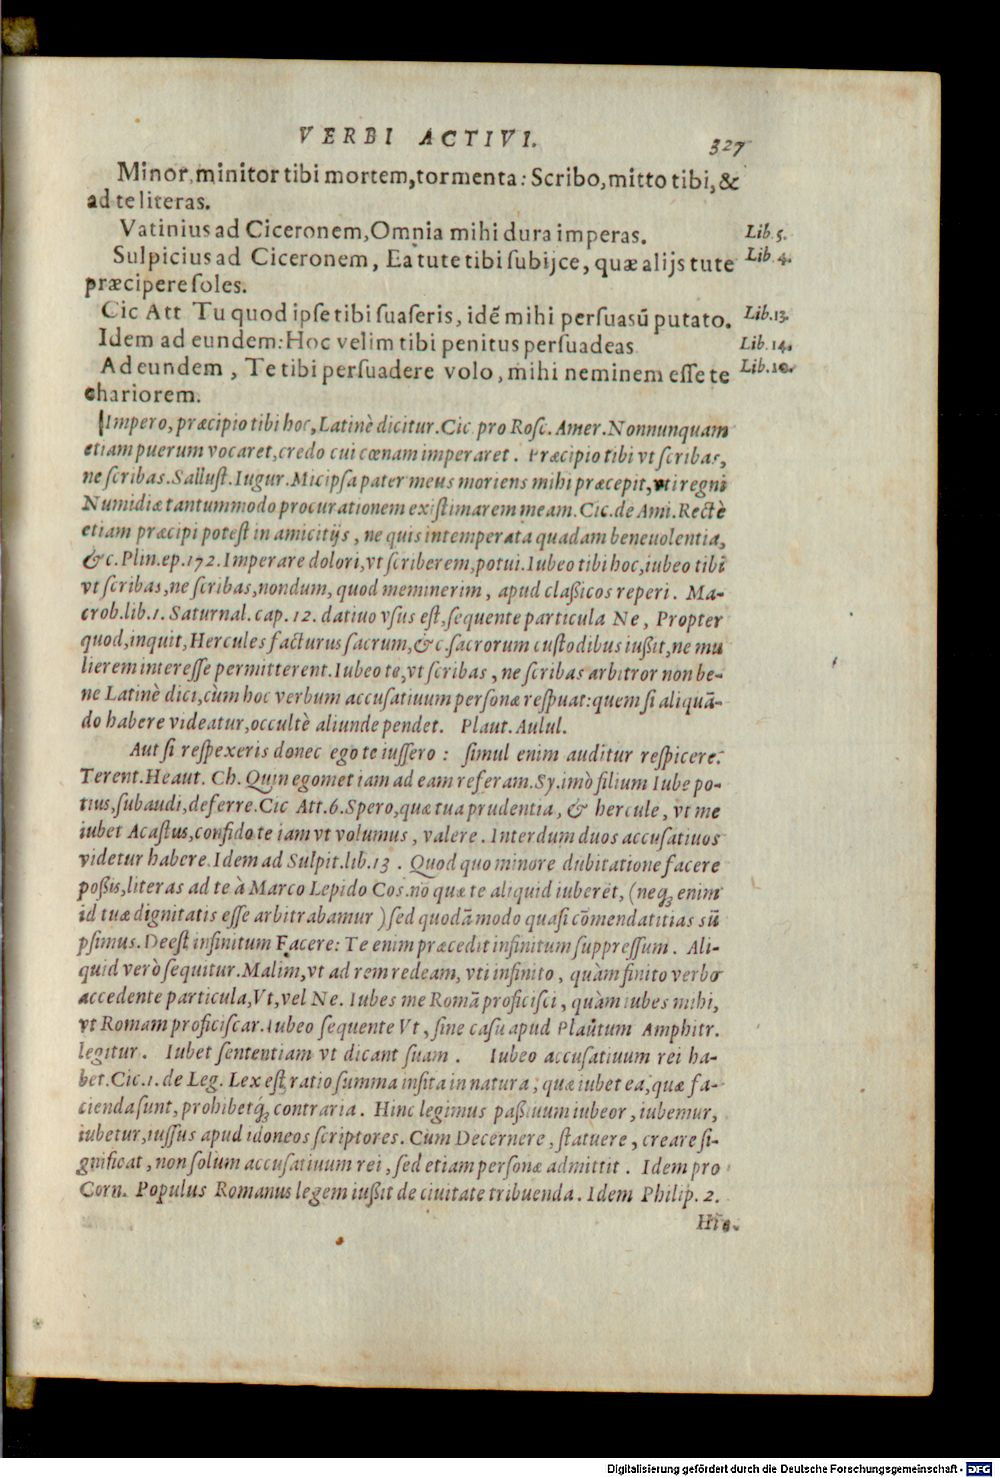 VERBI ACTIVI. 327
Minor, minitor tibi mortem, tormenta: Scribo, mitto tibi, &
ad te literas.
Vatinius ad Ciceronem, Omnia mihi dura imperas. Lib. 5.
Sulpicius ad Ciceronem, Ea tute tibi subijce, quæ alijs tute Lib. 4.
præcipere soles.
Cic Att Tu quod ipse tibi suaseris, idē mihi persuasū putato. Lib. 13.
Idem ad eundem: Hoc velim tibi penitus persuadeas Lib. 14.
Ad eundem, Te tibi persuadere volo, mihi neminem esse te Lib. 10.
chariorem.
Impero, præcipio tibi hoc, Latinè dicitur. Cic pro Rosc. Amer. Nonnunquam
etiam puerum vocaret, credo cui cœnam imperaret. Præcipio tibi vt scribas,
ne scribas. Sallust. Iugur. Micipsa pater meus moriens mihi præcepit, vti regni
Numidiæ tantummodo procurationem existimarem meam. Cic. de Ami. Rectè
etiam præcipi potest in amicitijs, ne quis intemperata quadam beneuolentia,
&c. Plin. ep. 172. Imperare dolori, vt scriberem, potui. Iubeo tibi hoc, iubeo tibi
vt scribas, ne scribas, nondum, quod meminerim, apud claßicos reperi. Ma-
crob. lib. 1. Saturnal. cap. 12. datiuo vsus est, sequente particula Ne, Propter
quod, inquit, Hercules facturus sacrum, &c. sacrorum custodibus iußit, ne mu
lierem interesse permitterent. Iubeo te, vt scribas, ne scribas arbitror non be-
ne Latinè dici, cùm hoc verbum accusatiuum personæ respuat: quem si aliquā-
do habere videatur, occultè aliunde pendet. Plaut. Aulul.
Aut si respexeris donec ego te iussero: simul enim auditur respicere.
Terent. Heaut. Ch. Quin egomet iam ad eam referam. Sy. imò filium Iube po-
tius, subaudi, deferre. Cic Att. 6. Spero, quæ tua prudentia, & hercule, vt me
iubet Acastus, confido te iam vt volumus, valere. Interdum duos accusatiuos
videtur habere. Idem ad Sulpit. lib. 13. Quod quo minore dubitatione facere
poßis, literas ad te à Marco Lepido Cos. nō quæ te aliquid iuberēt, (neq; enim
id tuæ dignitatis esse arbitrabamur) sed quodā modo quasi cōmendatitias sū
psimus. Deest infinitum Facere: Te enim præcedit infinitum suppressum. Ali-
quid verò sequitur. Malim, vt ad rem redeam, vti infinito, quàm finito verbo
accedente particula, Vt, vel Ne. Iubes me Romā proficisci, quàm iubes mihi,
vt Romam proficiscar. Iubeo sequente Vt, sine casu apud Plautum Amphitr.
legitur. Iubet sententiam vt dicant suam. Iubeo accusatiuum rei ha-
bet. Cic. 1. de Leg. Lex est ratio summa insita in natura, quæ iubet ea, quæ fa-
cienda sunt, prohibetq; contraria. Hinc legimus paßiuum iubeor, iubemur,
iubetur, iussus apud idoneos scriptores. Cum Decernere, statuere, creare si-
gnificat, non solum accusatiuum rei, sed etiam personæ admittit. Idem pro
Corn. Populus Romanus legem iußit de ciuitate tribuenda. Idem Philip. 2.
Digitalisierung gefördert durch die Deutsche Forschungsgemeinschaft - DFG